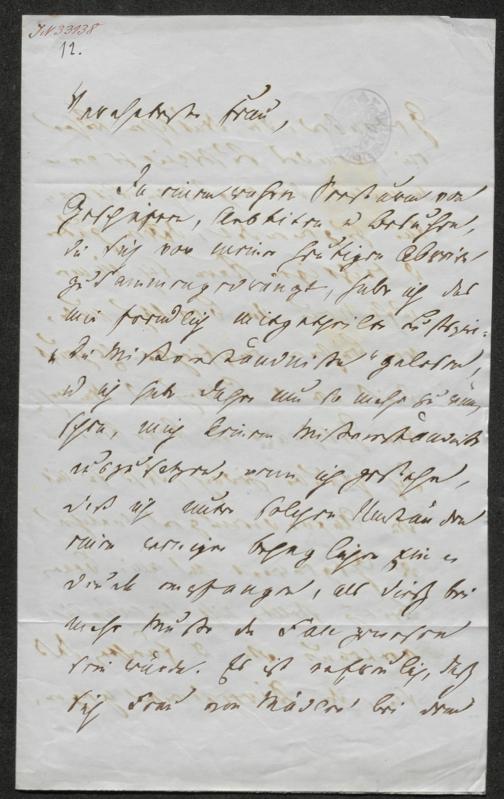 JN 33938
12.
Verehrteste Frau,
In einem wahren Prestissimo von
Geschäften, Arbeiten u Besuchen,
die sich vor meiner heutigen Abreise
zusammengedrängt, habe ich das
mir freundlich mitgetheilte Lustspiel
„Die Mißverständnisse" gelesen,
u ich habe daher um so mehr zu wün-
schen, mich keinem Mißverständniß
auszusetzen, wenn ich gestehe,
daß ich unter solchen Umständen
einen weniger behaglichen Ein-
druck empfangen, als dieß bei
mehr Muße der Fall gewesen
sein würde. Es ist erfreulich, daß
sich Frau von bei dem